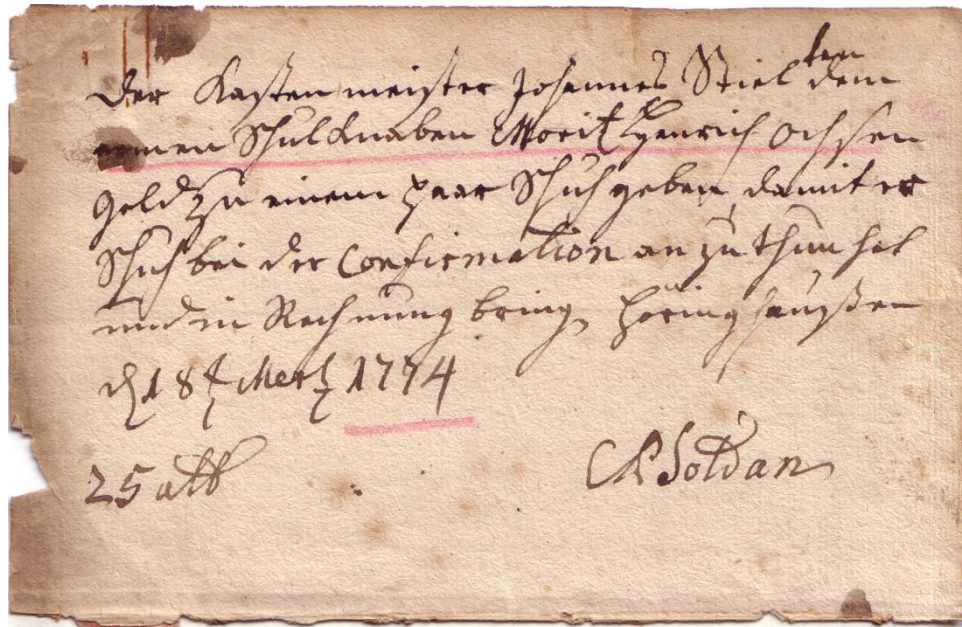 Der Kastenmeister Johannes Stiel kan dem
armen Schulknaben Moritz Henrich Ochsen
Geld zu einem paar Schuh geben, damit er
Schuh bei der Confirmation an zu thun hat
und in Rechnung bring, Höringhaußen
d 18t Mertz 1774
25 alb
Soldan